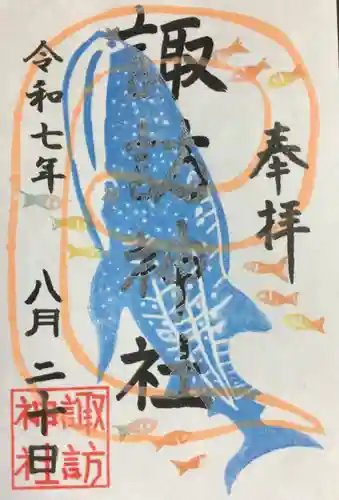 奉拝
諏訪神社
令和七年
八月二十日
諏訪
神社